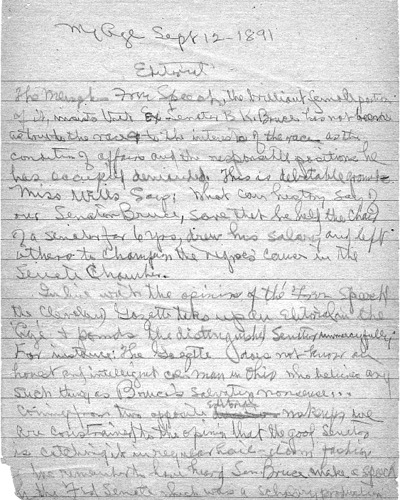 N.Y. Age Sept 12 - 1891
Editorial
The Memphis Free Speech, the brilliant female portion
of it, insists that Ex Senator B. K. Bruce has not been
as true to the race & to the interests of the race as the
condition of affairs and the responsible positions he
has occupied demanded. This is debatable ground.
Miss Wells says: What can history say of
our Senator Bruce, save that he held the chair
of a Senator for 6 yrs, drew his salary and left
others to champion the Negroes cause in the
Senate Chamber.
In line with the opinion of the Free Speech
the Cleveland Gazette takes up an Editorial in the
Age & pounds the distinguished Senator unmercifully
For instance: The Gazette does not know an
honest and intelligent col man in Ohio who believes any
such thing as Bruce's Salvation nonsense...
Coming from two opposite editorial makeups we
are constrained to the opinion that the good Senator
is catching it in regular hail-storm fashion
We remember to have heard Sen Bruce make a speech
in the Senate which was a